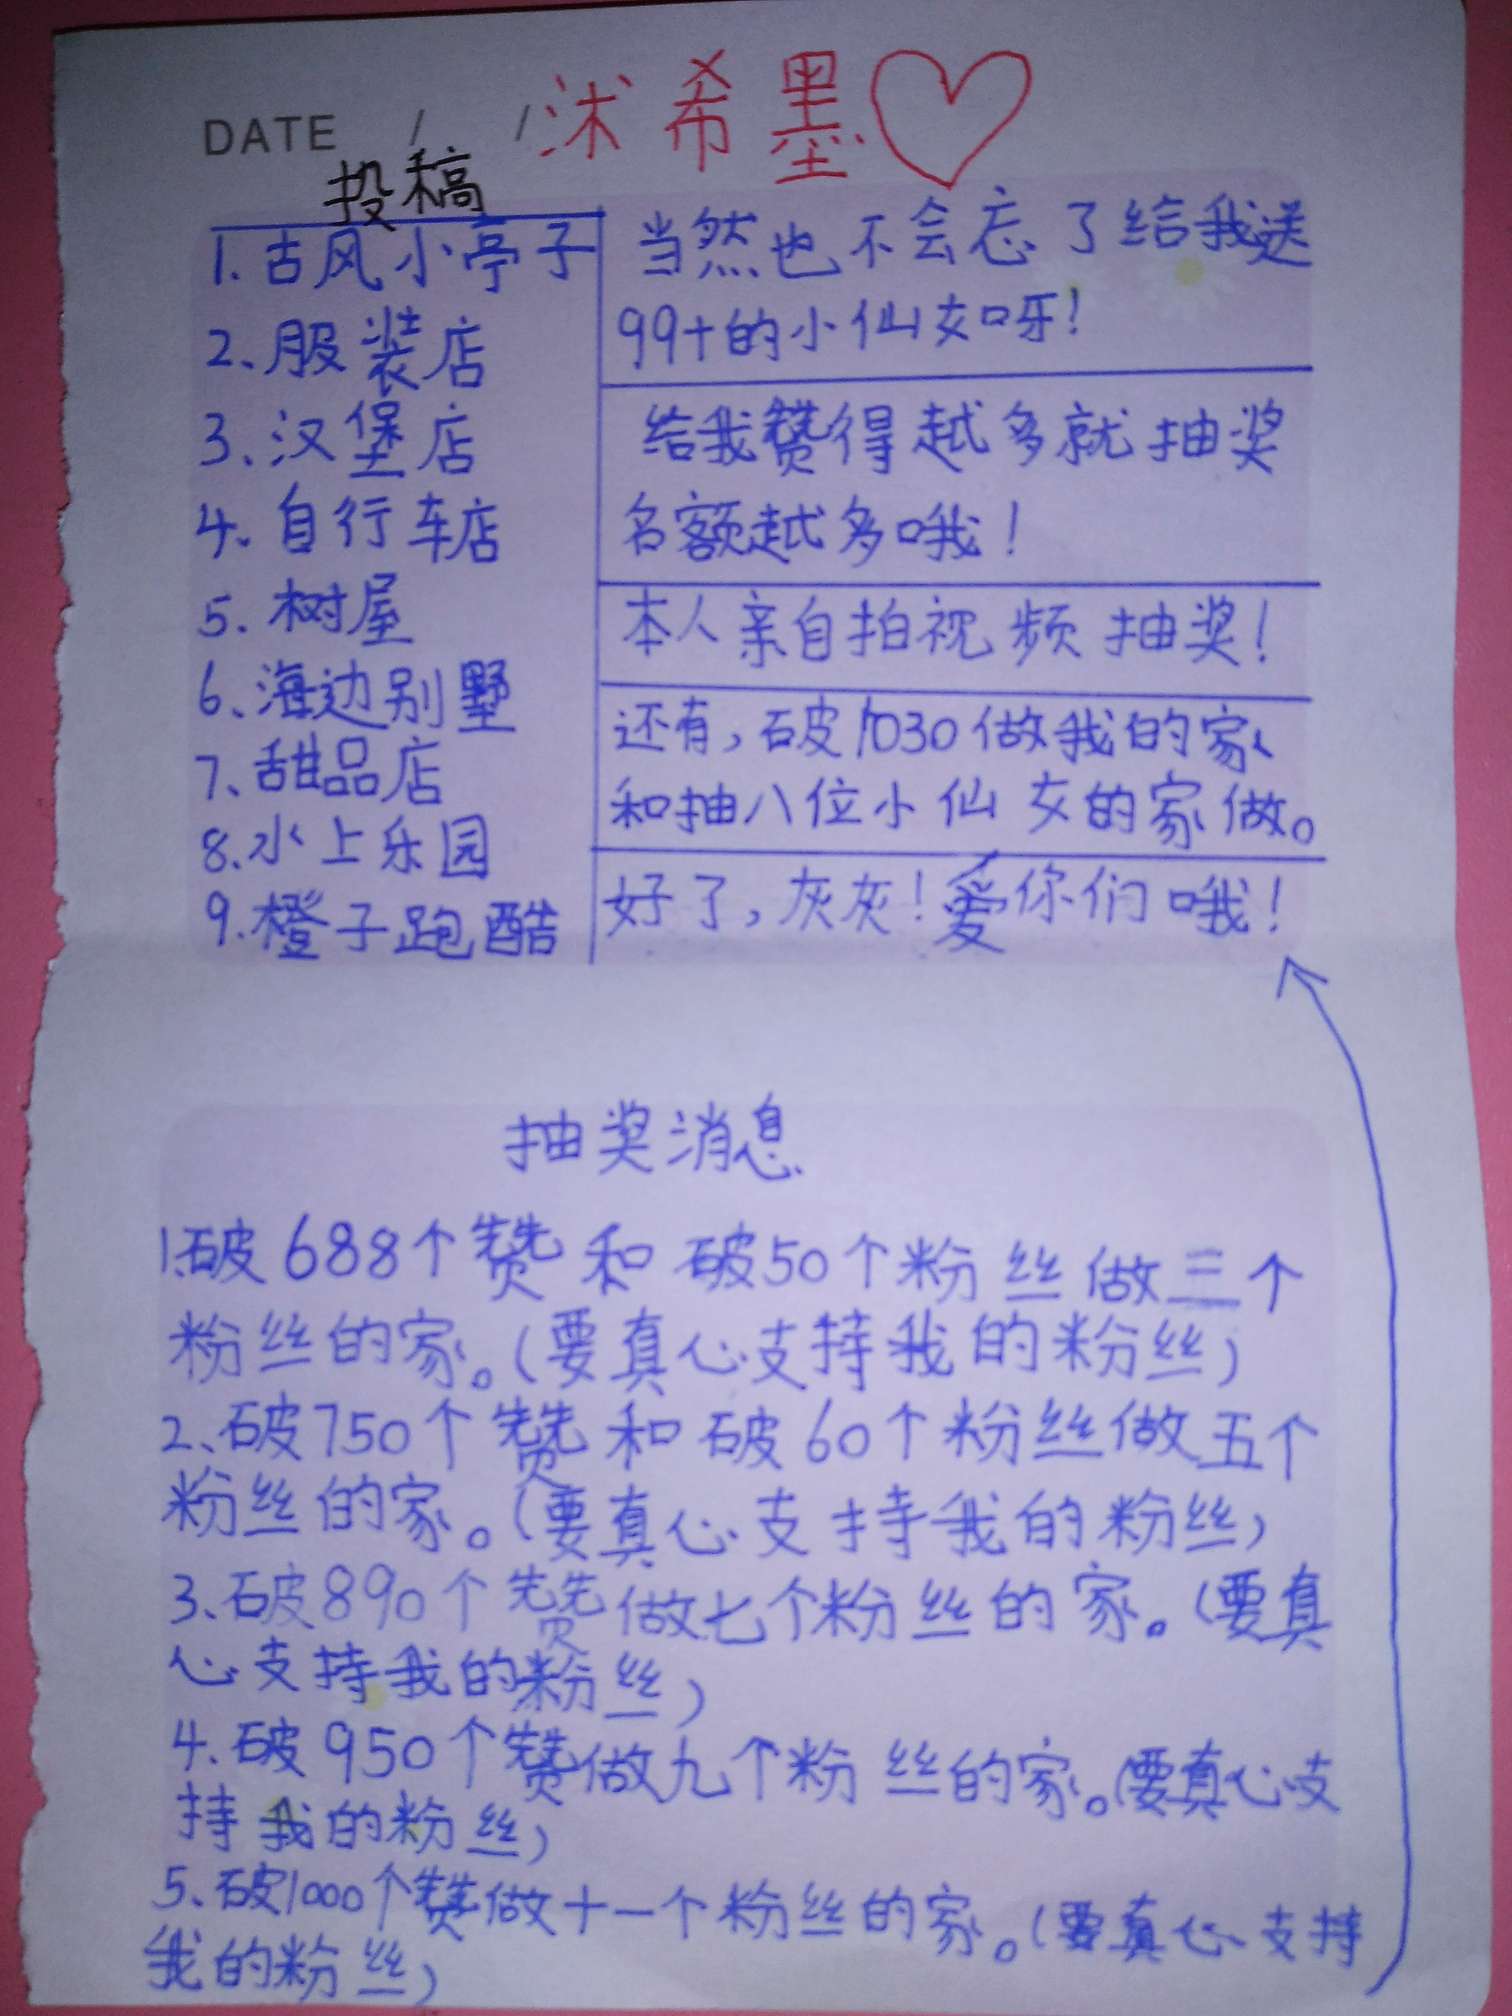 DATE / / 沭希墨
投稿
1.古风小亭子
2、服装店
3、汉堡店
4、自行车店
5.树屋
6、海边别墅
7、甜品店
8.水上乐园
9.橙子跑酷
当然也不会忘了给我送
99+的小仙女呀!
给我赞得越多就抽奖
名额越多哦!
本人亲自拍视频抽奖!
还有,破1030做我的家
和抽八位小仙女的家做。
好了,灰灰!爱你们哦!
抽奖消息
1.破688个赞和破50个粉丝做三个
粉丝的家。(要真心支持我的粉丝)
2、破750个赞和破60个粉丝做五个
粉丝的家。(要真心支持我的粉丝)
3、破890个赞做七个粉丝的家。(要真
心支持我的粉丝)
4.破950个赞做九个粉丝的家。(要真心支
持我的粉丝)
5、破1000个赞做十一个粉丝的家。(要真心支持
我的粉丝)